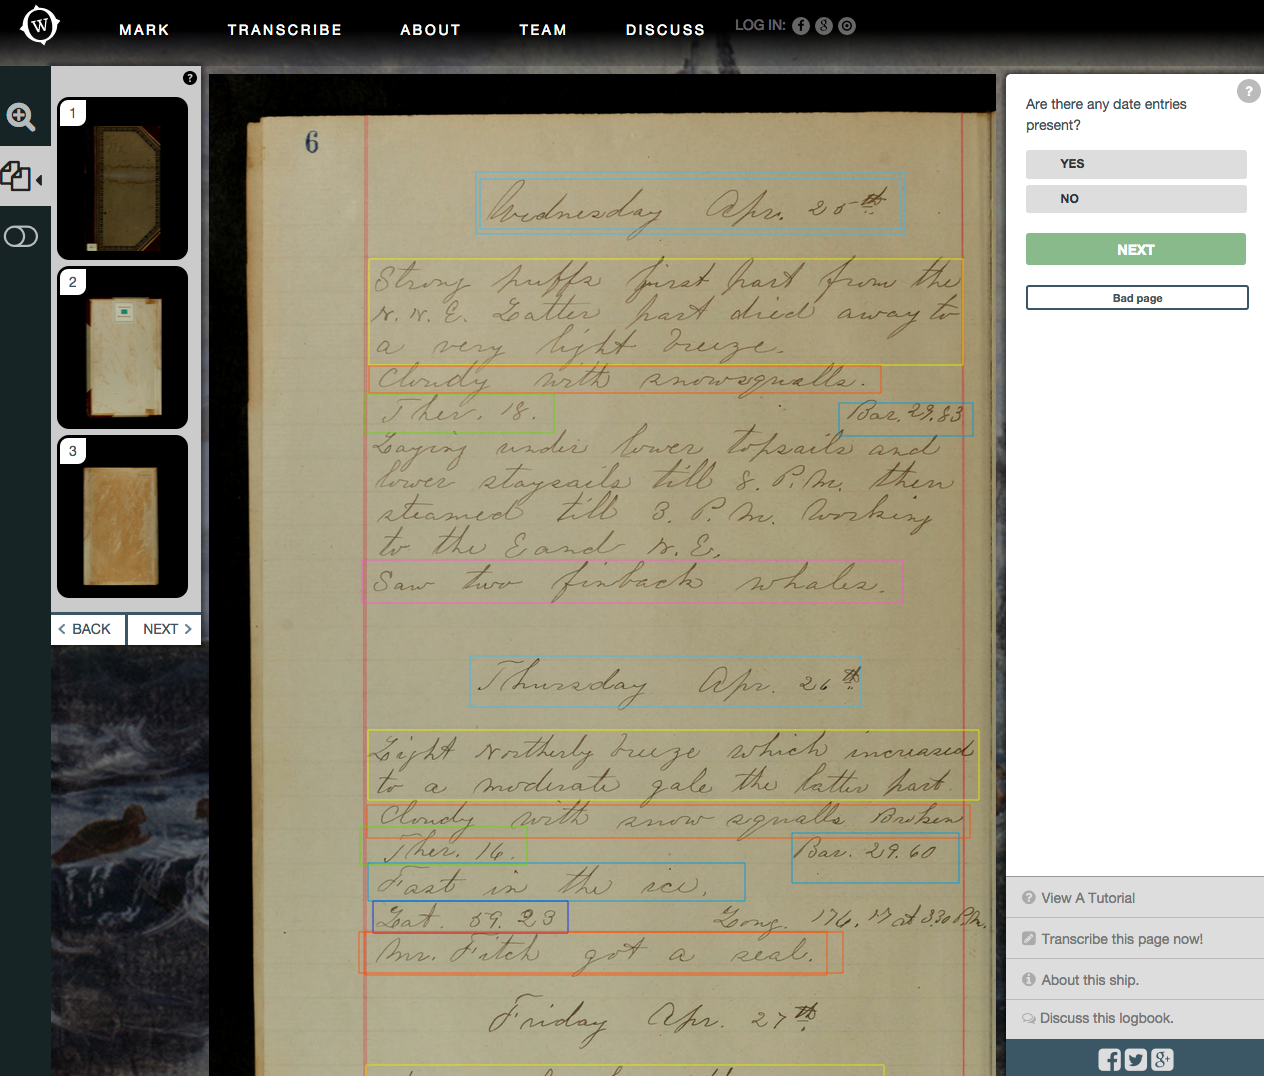 W
MARK
TRANSCRIBE
ABOUT
TEAM
DISCUSS
LOG IN:
?
1
2
3
< BACK
NEXT >
6
Wednesday Apr. 25th
Strong puffs first part from the
N.N.E. Latter part died away to
a very light breeze.
Cloudy with snowsqualls.
Ther. 18. Bar. 29.83
Laying under lower topsails and
lower staysails till 8. P.M. then
steamed till 3. P.M. Working
to the E and N.E.
Saw two finback whales.
Thursday Apr. 26th
Light Northerly breeze which increased
to a moderate gale the latter part.
Cloudy with snow squalls. Broken
Ther. 16. Bar. 29.60
Fast in the ice.
Lat. 59.23 Long. 176.17 at 3.30 P.M.
Mr. Fitch got a seal.
Friday Apr. 27th
?
Are there any date entries
present?
YES
NO
NEXT
Bad page
? View A Tutorial
Transcribe this page now!
i About this ship.
Discuss this logbook.